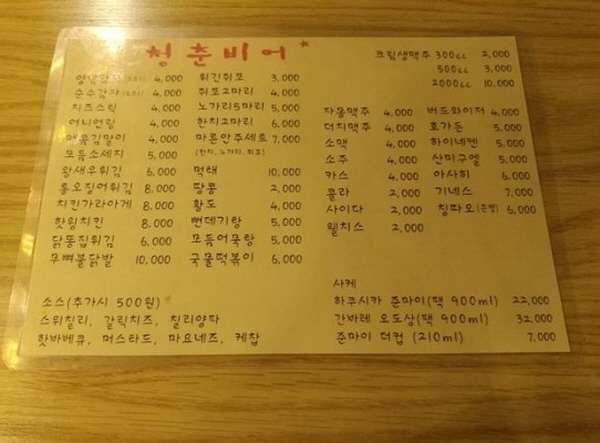 청춘비어*
양념감자 4,000
순수감자 4,000
치즈스틱 4,000
어니언링 4,000
매콤김말이 4,000
모듬소세지 5,000
왕새우튀김 6,000
통오징어튀김 8,000
치킨가라아게 8,000
핫윙치킨 8,000
닭똥집튀김 6,000
무뼈불닭발 10,000
쥐긴쥐포 3,000
쥐포2마리 4,000
노가리5마리 5,000
한치2마리 6,000
마른안주세트 7,000
(한치, 노가리, 쥐포)
먹태 10,000
땅콩 2,000
황도 4,000
뻔데기탕 5,000
모듬어묵탕 5,000
국물떡볶이 6,000
크림생맥주 300cc 2,000
500cc 3,000
2000cc 10,000
자몽맥주 4,000
더치맥주 4,000
소맥 4,000
소주 4,000
카스 4,000
콜라 2,000
사이다 2,000
웰치스 2,000
버드와이저 4,000
호가든 5,000
하이네켄 5,000
산미구엘 5,000
아사히 6,000
기네스 7,000
칭따오 6,000
소스(추가시 500원)
스위칠리, 갈릭치즈, 칠리양파
핫바베큐, 머스타드, 마요네즈, 케찹
사케
하쿠시카 준마이(팩 900ml) 22,000
간바레 오도상(팩 900ml) 32,000
준마이 더컵 (210ml) 7,000